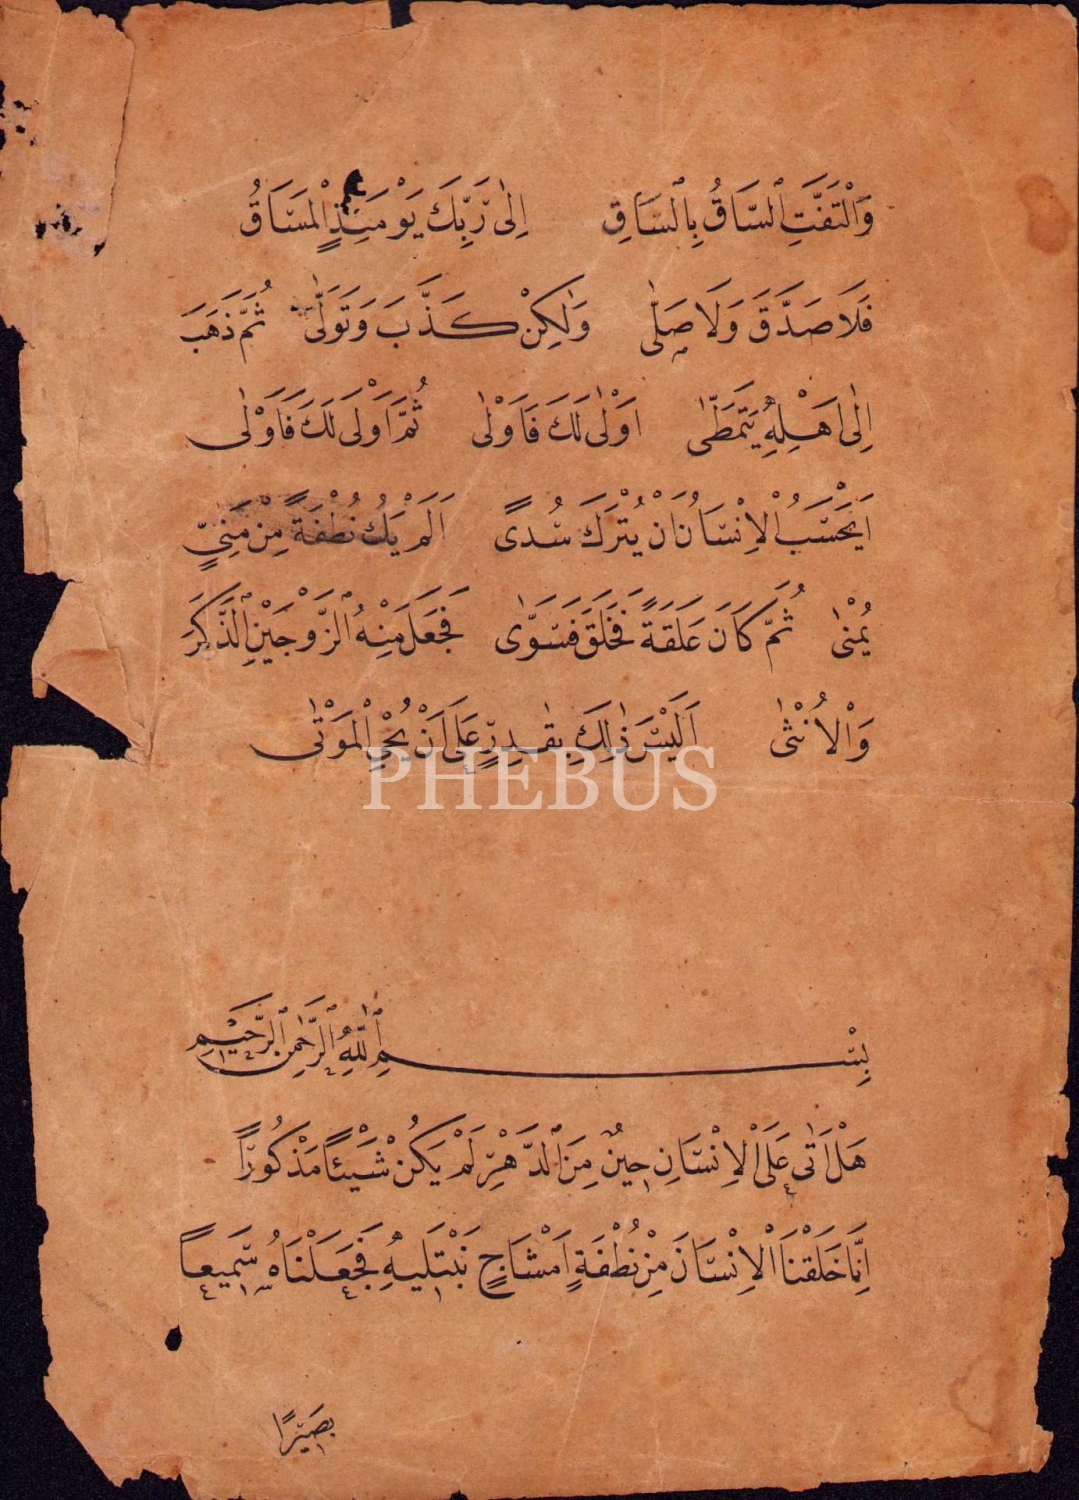 وَالْتَفَّتِ ٱلسَّاقُ بِٱلسَّاقِ اِلٰى رَبِّكَ يَوْمَئِذٍ ٱلْمَسَاقُ
فَلَا صَدَّقَ وَلَا صَلّٰى وَلٰكِنْ كَذَّبَ وَتَوَلّٰى ثُمَّ ذَهَبَ
اِلٰى اَهْلِهِ يَتَمَطّٰى اَوْلٰى لَكَ فَاَوْلٰى ثُمَّ اَوْلٰى لَكَ فَاَوْلٰى
اَيَحْسَبُ الْاِنْسَانُ اَنْ يُتْرَكَ سُدًى اَلَمْ يَكُ نُطْفَةً مِنْ مَنِيٍّ
يُمْنٰى ثُمَّ كَانَ عَلَقَةً فَخَلَقَ فَسَوّٰى فَجَعَلَ مِنْهُ ٱلزَّوْجَيْنِ ٱلذَّكَرَ
وَالْاُنْثٰى اَلَيْسَ ذٰلِكَ بِقٰدِرٍ عَلٰٓى اَنْ يُحْيِ الْمَوْتٰى
PHEBUS
بِسْمِ ٱللّٰهِ ٱلرَّحْمٰنِ ٱلرَّحِيْمِ
هَلْ اَتٰى عَلَى الْاِنْسَانِ حِينٌ مِنَ ٱلدَّهْرِ لَمْ يَكُنْ شَيْئًا مَذْكُورًا
اِنَّا خَلَقْنَا الْاِنْسَانَ مِنْ نُطْفَةٍ اَمْشَاجٍ نَبْتَلِيهِ فَجَعَلْنَاهُ سَمِيعًا
بَصِيْرًا